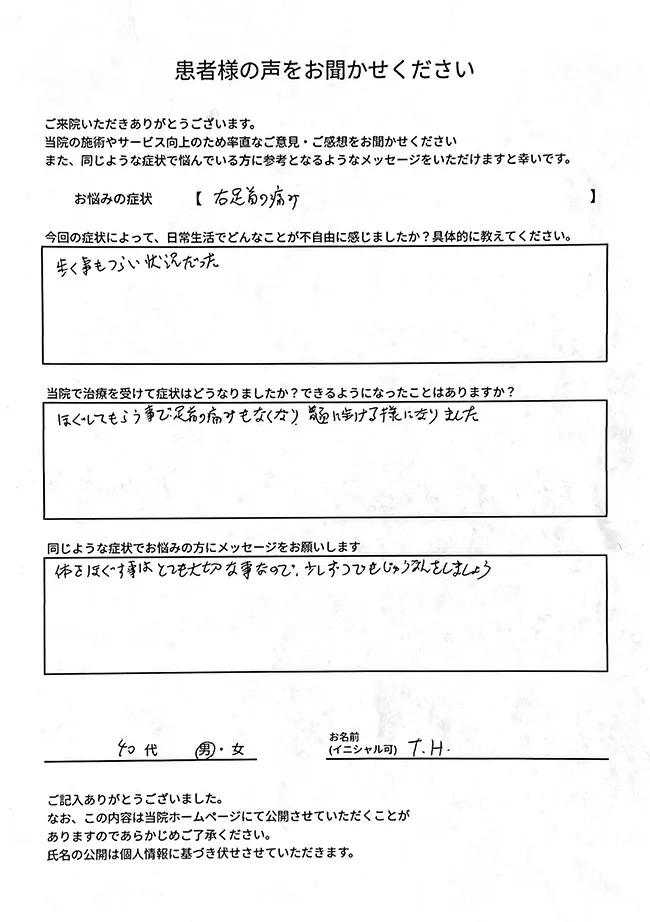 患者様の声をお聞かせください
ご来院いただきありがとうございます。
当院の施術やサービス向上のため率直なご意見・ご感想をお聞かせください
また、同じような症状で悩んでいる方に参考となるようなメッセージをいただけますと幸いです。
お悩みの症状 【 右足首の痛み 】
今回の症状によって、日常生活でどんなことが不自由に感じましたか？具体的に教えてください。
歩く事もつらい状況だった
当院で治療を受けて症状はどうなりましたか？できるようになったことはありますか？
ほぐしてもらう事で足首の痛みもなくなり に歩ける様になりました
同じような症状でお悩みの方にメッセージをお願いします
体をほぐす事はとても大切な事なので、少しずつでもじゅうなんをしましょう
40代 男・女
お名前
(イニシャル可) T.H.
ご記入ありがとうございました。
なお、この内容は当院ホームページにて公開させていただくことが
ありますのであらかじめご了承ください。
氏名の公開は個人情報に基づき伏せさせていただきます。